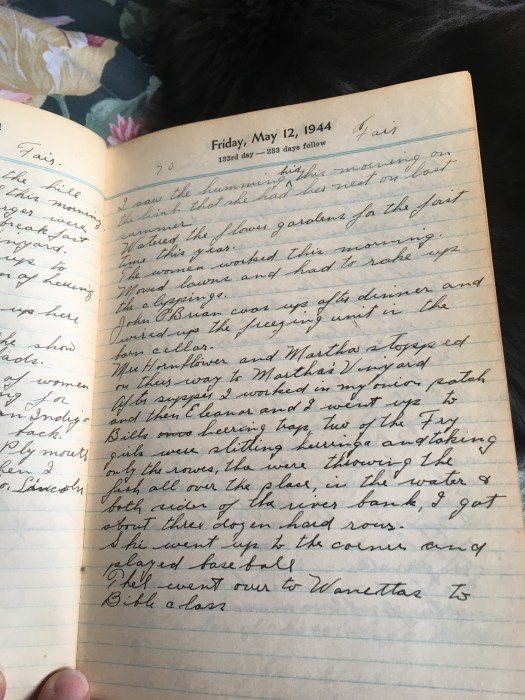 Fair.
the hill
this morning
were
breakfast
up to
up here
he show
of women
for
back.
Plymouth
when I
Lincoln
Friday, May 12, 1944
133rd day — 233 days follow
Fair
73
I saw the humming bird this morning on
the limb that she had her nest on last
summer
Watered the flower gardens for the first
time this year.
The women worked this morning.
Mowed lawns and had to rake up
the clippings.
John O'Brian was up after dinner and
wired up the freezing unit in the
barn cellar.
Mrs Hornflower and Martha stopped
on their way to Martha's Vinyard
After supper I worked in my onion patch
and then Eleanor and I went up to
Bills herring trap, two of the Fry
girls were slitting herrings and taking
only the rows, tha were throwing the
fish all over the place, in the water &
both sides of the river bank, I got
about three dozen hard rows.
Ski went up to the corner and
played base ball
Thel went over to Wanettas to
Bible class